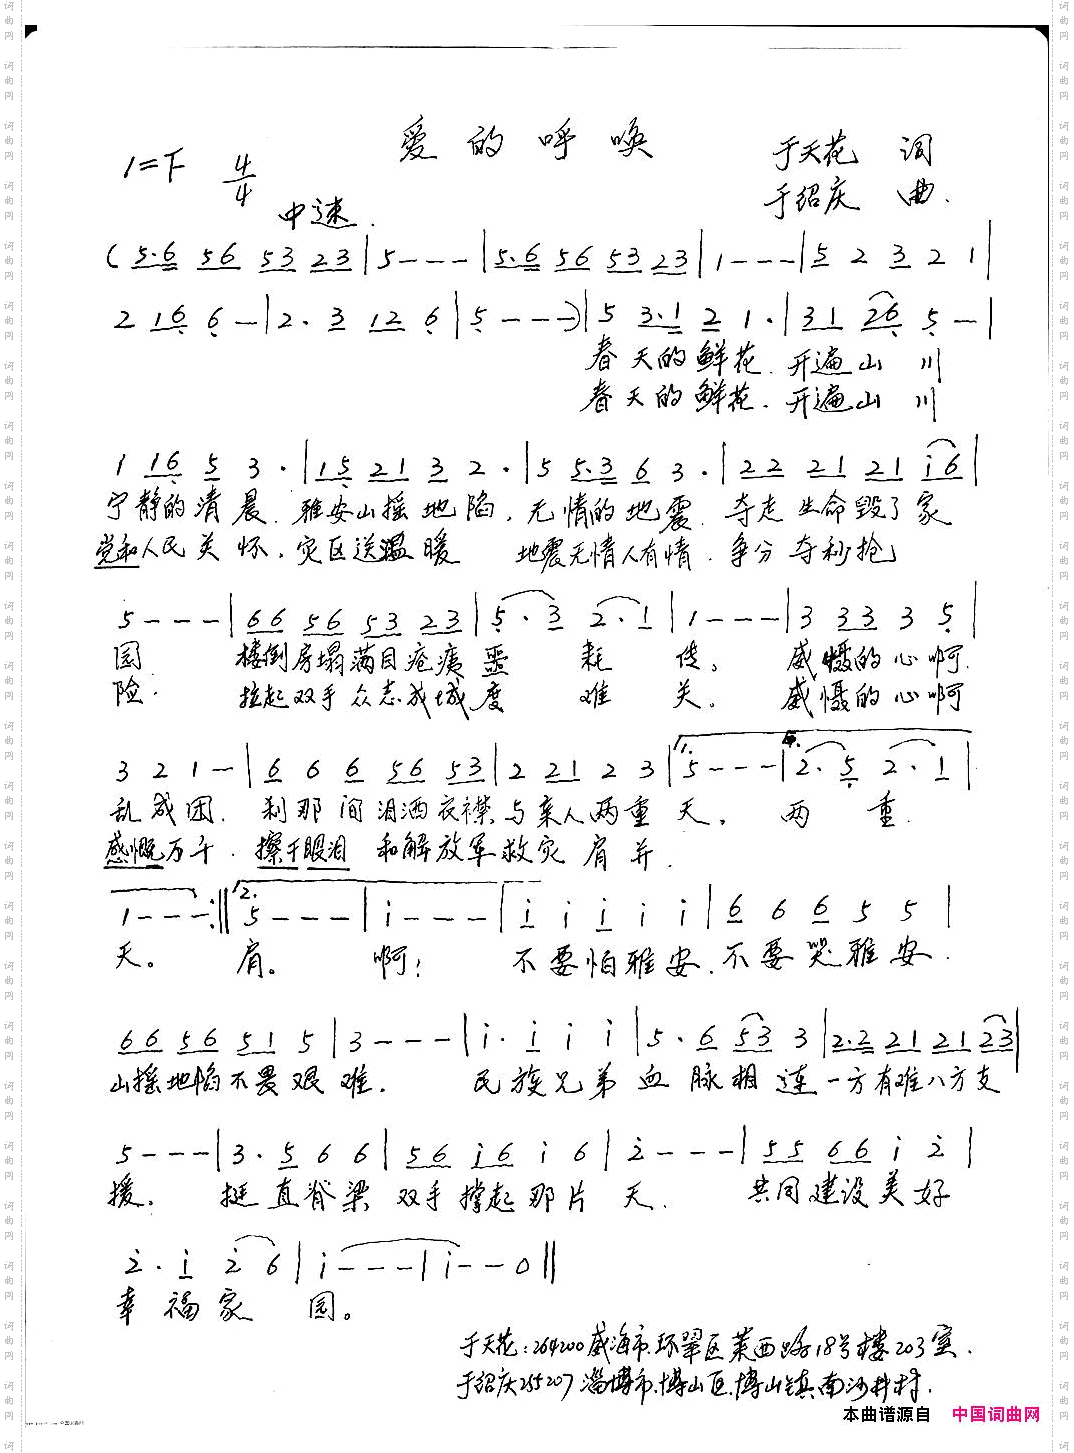 爱的呼唤
1=F 4/4 于天花 词
中速. 于绍庆 曲.
(5·6 56 53 23|5---|5·6 56 53 23|1---|5 2 3 2 1|
2 16 6-|2·3 12 6|5---)|5 3·1 2 1·|31 26 5-|
春天的鲜花.开遍山川
春天的鲜花.开遍山川
1 16 5 3·|15 21 3 2·|5 5·3 6 3·|22 21 21 i6|
宁静的清晨.雅安山摇地陷,无情的地震.夺走生命毁了家
党和人民关怀.灾区送温暖 地震无情人有情.争分夺秒抢
5---|66 56 53 23|5·3 2·1|1---|3 33 3 5|
园 楼倒房塌满目疮痍噩耗传。感慨的心啊.
险. 拉起双手众志成城度难关。感慨的心啊
3 2 1-|6 6 6 56 53|2 21 2 3|1.5---|2·5 2·1|
乱成团.刹那间泪洒衣襟与亲人两重天。两重
感慨万千.擦干眼泪 和解放军救灾肩并.
1---:‖2.5---|i---|i i i i i|6 6 6 5 5|
天。肩。啊! 不要怕雅安.不要哭雅安.
66 56 51 5|3---|i·i i i|5·6 53 3|2·2 21 21 23|
山摇地陷不畏艰难. 民族兄弟血脉相连一方有难八方支
5---|3·5 6 6|56 i6 i 6|2---|55 66 i 2|
援。挺直脊梁双手撑起那片天.共同建设美好
2·i 2 6|i---|i--0‖
幸福家园。
于天花:264200威海市.环翠区莱西路18号楼203室.
于绍庆255207淄博市.博山区.博山镇南沙井村.
本曲谱源自 中国词曲网